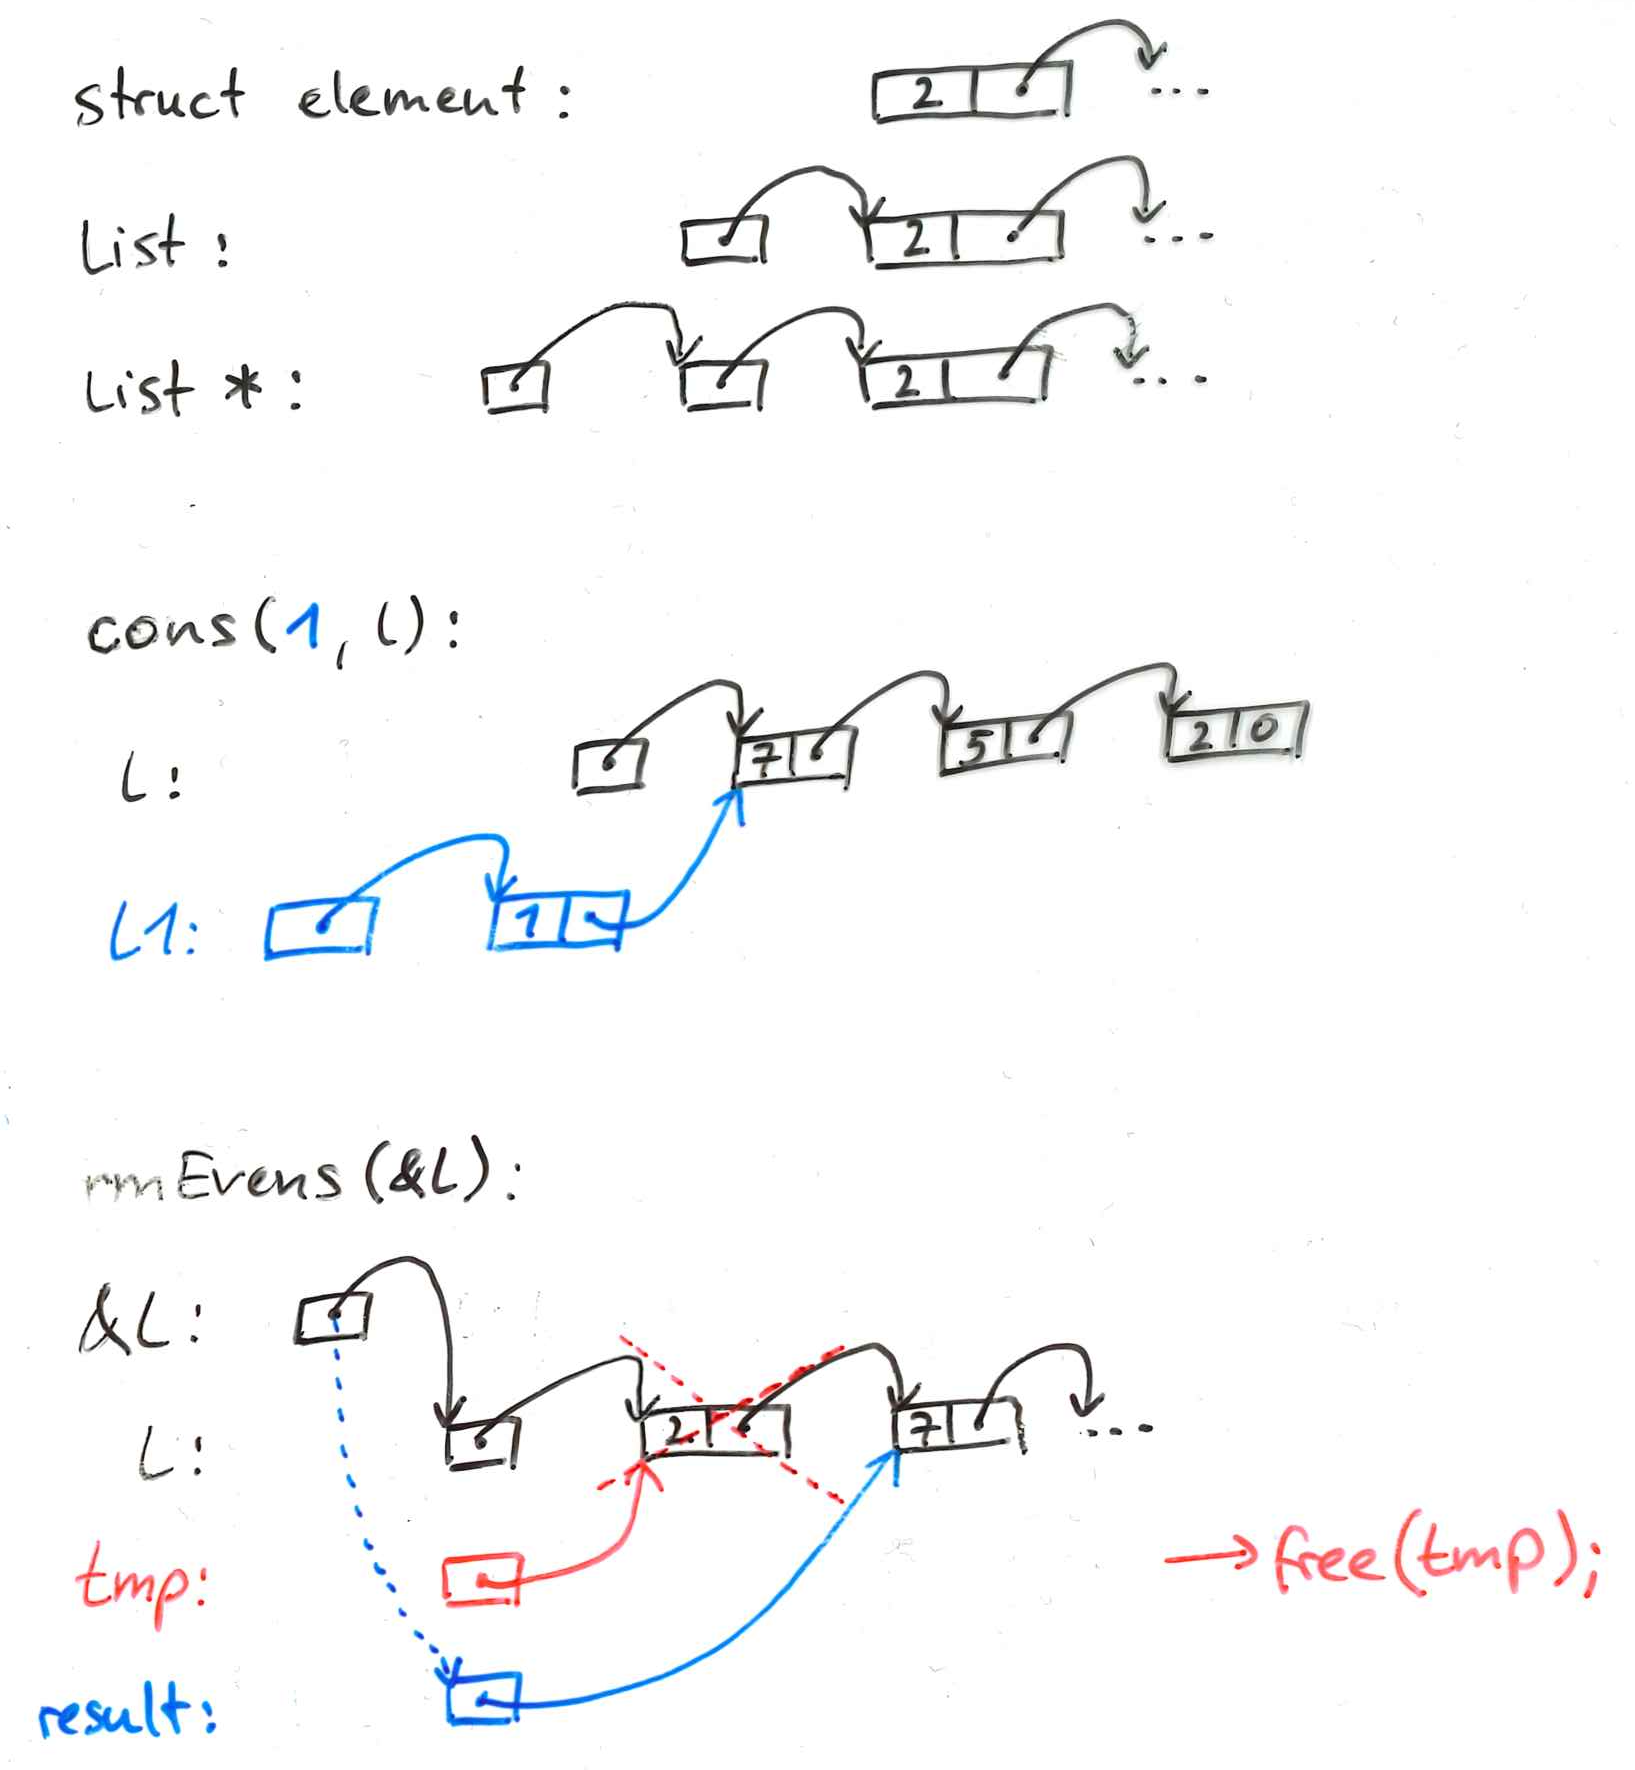 struct element: 2 ...
List: 2 ...
List *: 2 ...
cons(1, l):
l: 7 5 2 0
l1: 1
rmEvens(&L):
&L:
L: 2 7 ...
tmp: → free(tmp);
result: